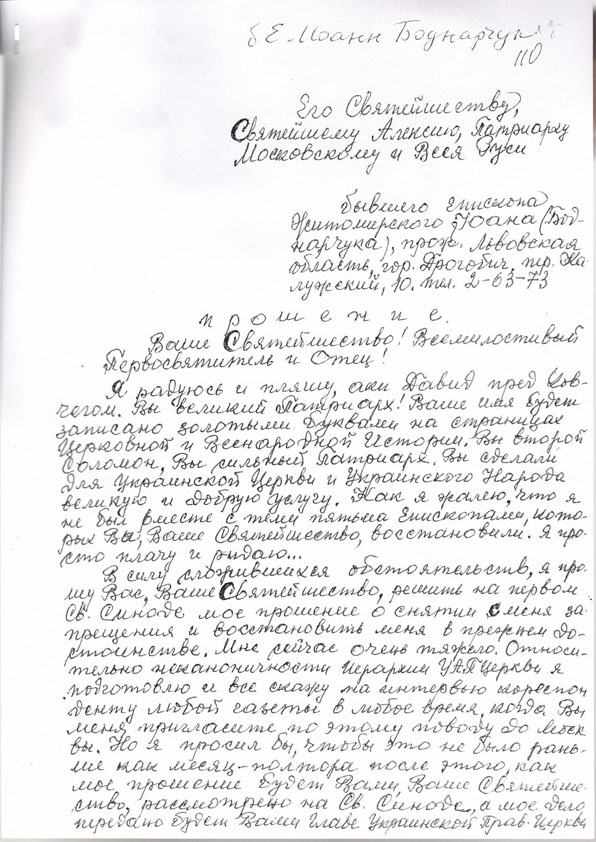 б Е. Иоанн Боднарчук
110
Его Святейшеству,
Святейшему Алексию, Патриарху
Московскому и Всея Руси
бывшего Епископа
Житомирского Иоана (Бод-
нарчука), прож. Львовская
область, гор. Дрогобич, пр. Ка-
лужский, 10. тел. 2-63-73
прошение.
Ваше Святейшество! Всемилостивый
Первосвятитель и Отец!
Я радуюсь и пляшу, аки Давид пред Ков-
чегом. Вы великий Патриарх! Ваше имя будет
записано золотыми буквами на страницах
Церковной и Всенародной Истории. Вы второй
Соломон, Вы сильный Патриарх. Вы сделали
для Украинской Церкви и Украинского Народа
великую и добрую услугу. Как я жалею, что я
не был вместе с теми пятьма Епископами, кото-
рых Вы, Ваше Святейшество, восстановили. Я про-
сто плачу и рыдаю...
В силу сложившихся обстоятельств, я про-
шу Вас, Ваше Святейшество, решить на первом
Св. Синоде мое прошение о снятии с меня за-
прещения и восстановить меня в прежнем до-
стоинстве. Мне сейчас очень тяжело. Относи-
тельно неканоничности Иерархии УАПЦеркви я
подготовлю и все скажу на интервью кореспон
денту любой газеты в любое время, когда Вы
меня пригласите по этому поводу до Моск
вы. Но я просил бы, чтобы это не было рань-
ше как месяц-полтора после этого, как
мое прошение будет Вами, Ваше Святейше-
ство, рассмотрено на Св. Синоде, а мое дело
передано будет Вами Главе Украинской Прав. Церкви